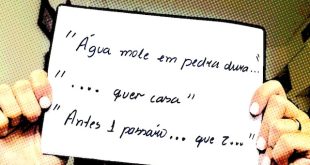 "Água mole em pedra dura..."
".... quer casa"
"Antes 1 pássaro... que 2..."